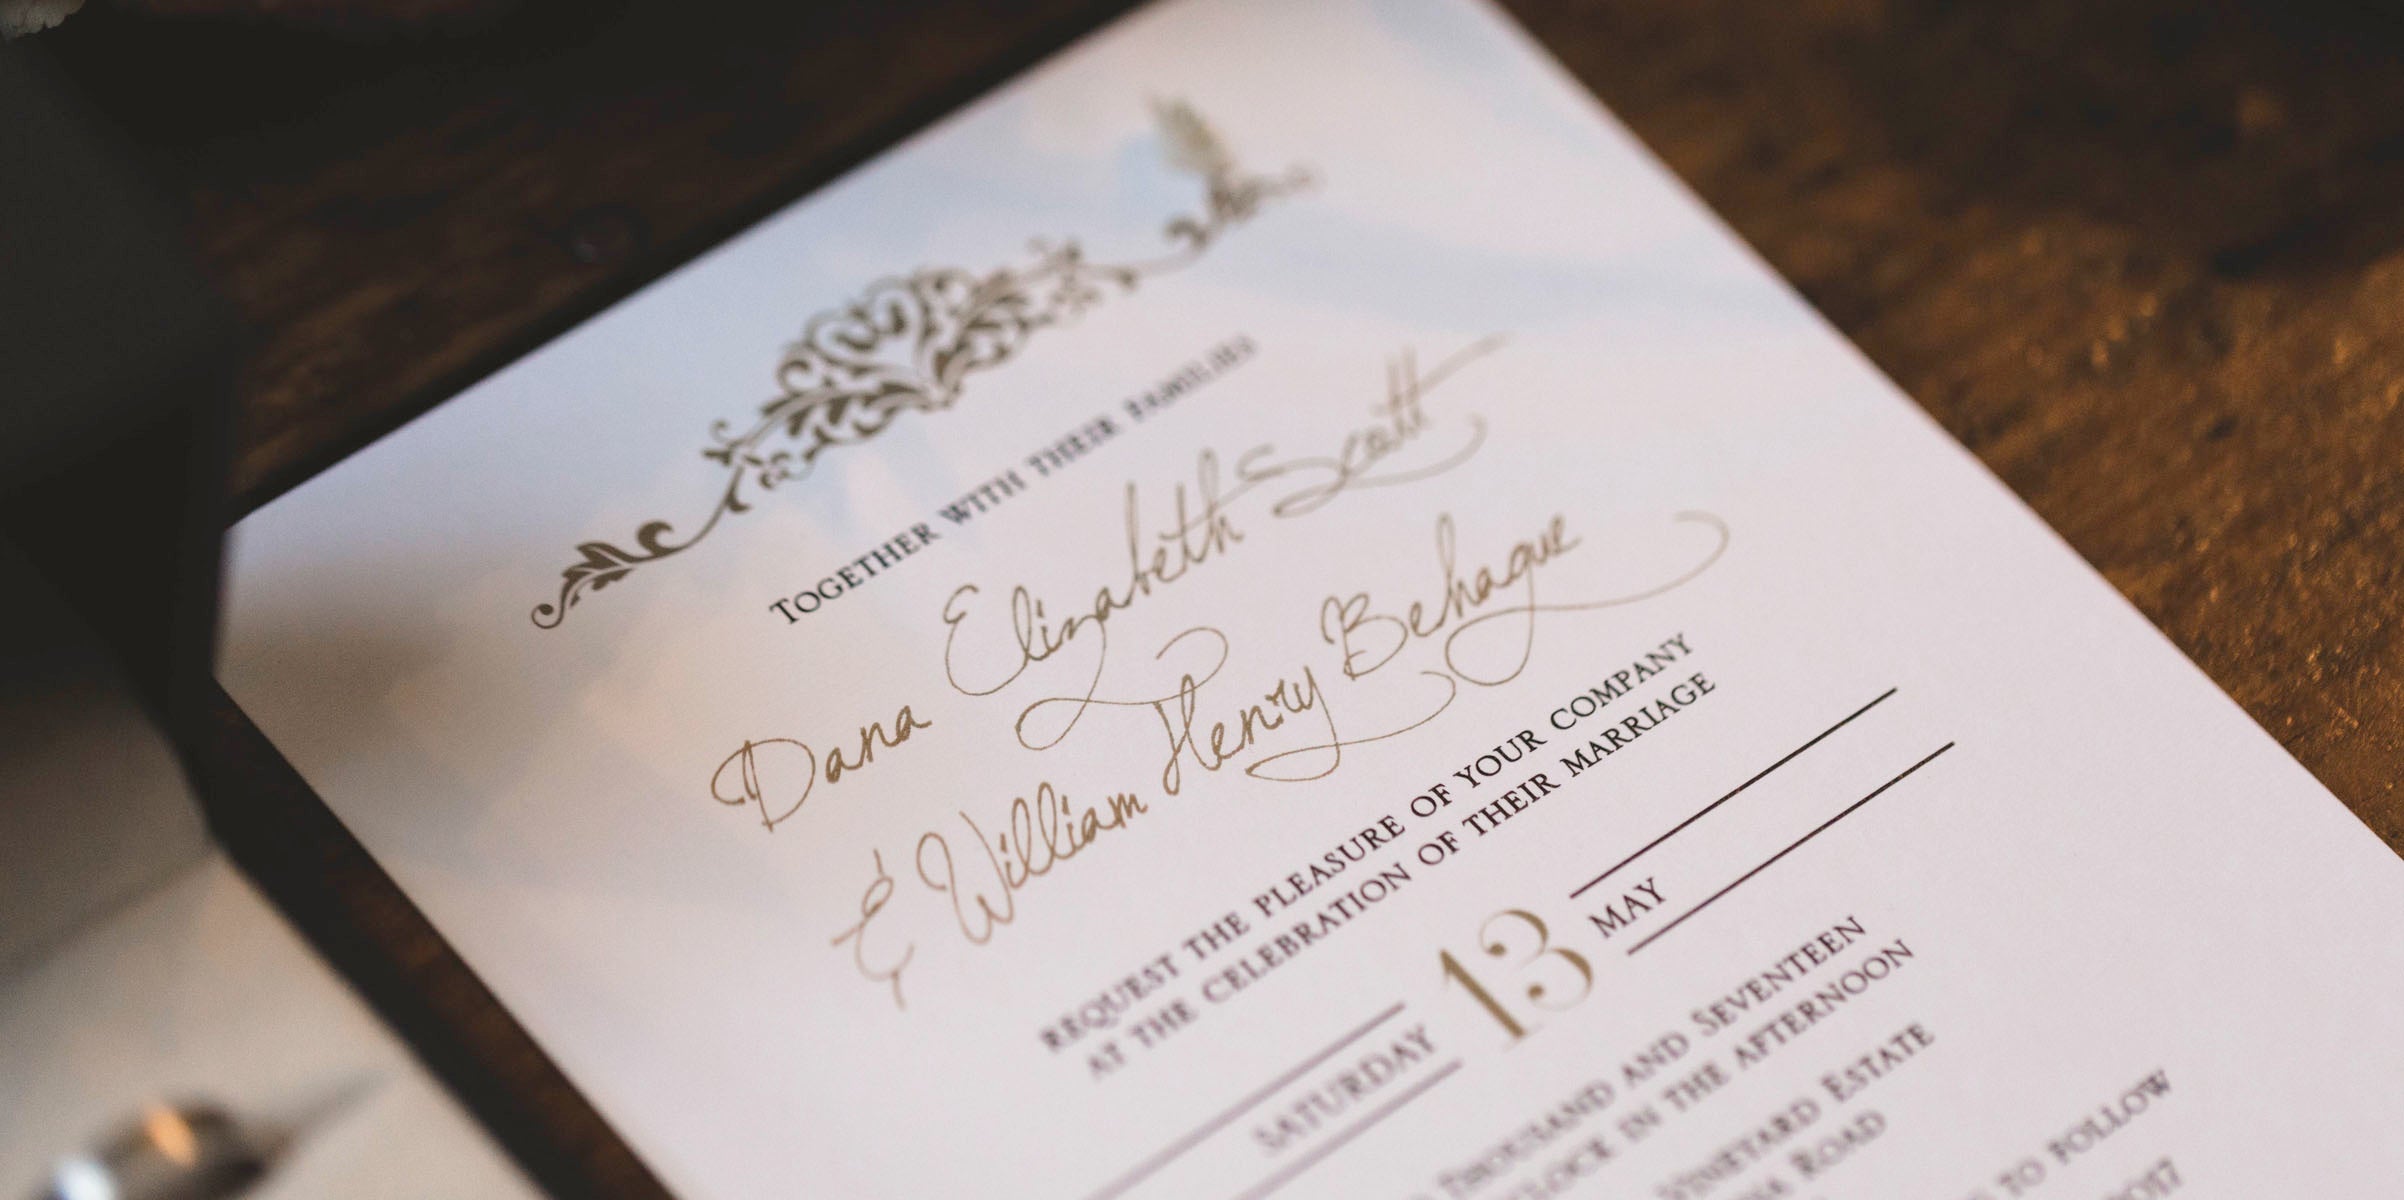 TOGETHER WITH THEIR FAMILIES
Dana Elizabeth Scott
& William Henry Behague
REQUEST THE PLEASURE OF YOUR COMPANY
AT THE CELEBRATION OF THEIR MARRIAGE
SATURDAY 13 MAY
THOUSAND AND SEVENTEEN
IN THE AFTERNOON
VINEYARD ESTATE
ROAD
TO FOLLOW